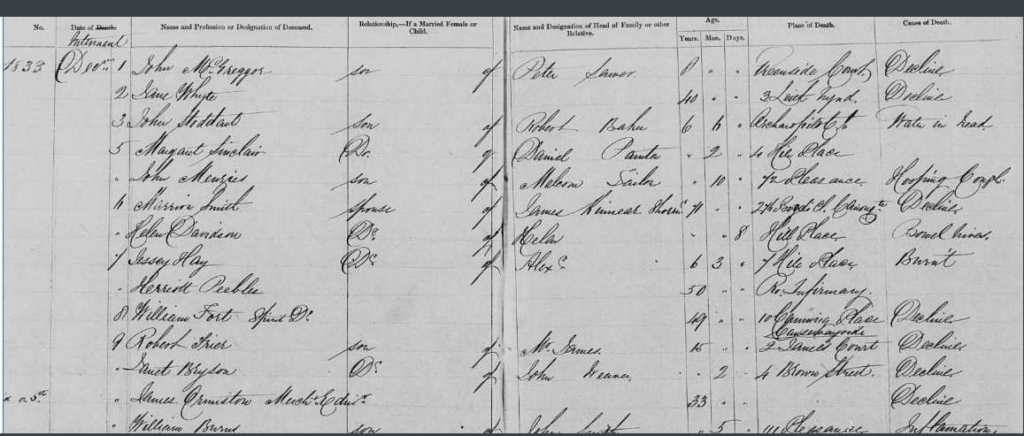 No. Date of Death. Name and Profession or Designation of Deceased. Relationship,—If a Married Female or Child. Name and Designation of Head of Family or other Relative. Age. Years. Mon. Days. Place of Death. Cause of Death.
Interment
1833 Decr 1 John McGreggor son of Peter 8 " " Greenside Court Decline
2 Jane Whyte 40 " " 3 Leith Wynd Decline
3 John Stoddart son of Robert Baker 6 6 " Water in head
5 Margaret Sinclair Dr. of Daniel Painter " 2 " 4 Hill Place
" John Menzies son of Malcom Tailor " 10 " 72 Pleasance Hooping Cough
6 Marrion Smith spouse of James Kinnear Decline
" Helen Davidson Dr. of Helen " " 8 Hill Place Bowel hives
7 Jessey Hay Dr. of Alexr 6 3 " 7 Hill Place Burnt
" Herriott Peebles 50 " Rl. Infirmary
8 William Fort Spirit Dr 49 " 10 Canning Place Decline
Causewayside
9 Robert Grier son of Mr James 15 " " 2 James Court Decline
" Janet Bryson Dr. of John Weaver " 2 4 Brown Street Decline
James Ormiston Mercht Edinr 33 Decline
" William Burns son of John Smith " 5 " Pleasance Inflamation